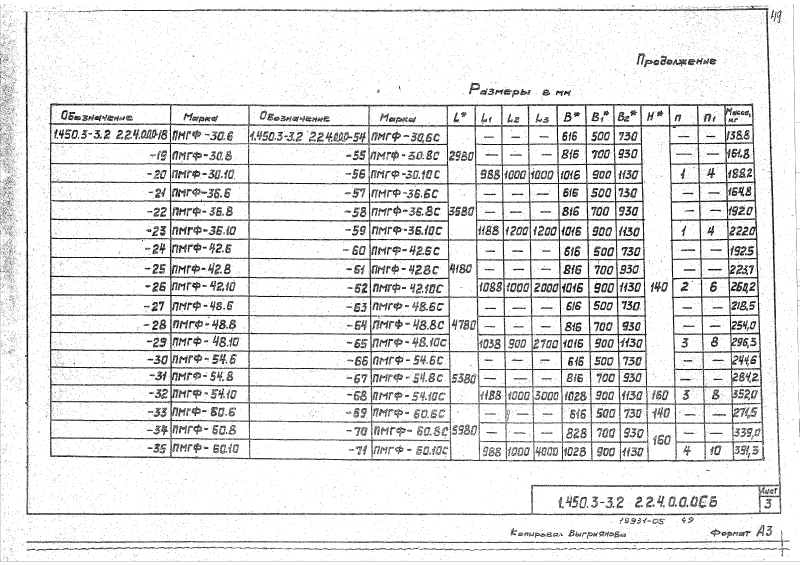 49
Продолжение
Размеры в мм
Обозначение Марка Обозначение Марка L* L1 L2 L3 B* B1* B2* H* n n1 Масса, кг
1.450.3-3.2 2.2.4.0.0.0-18 ПМГФ-30.6 1.450.3-3.2 2.2.4.0.0.0-54 ПМГФ-30.6С — — — 616 500 730 — — 138,8
-19 ПМГФ-30.8 -55 ПМГФ-30.8С 2980 — — — 816 700 930 — — 161,8
-20 ПМГФ-30.10 -56 ПМГФ-30.10С 988 1000 1000 1016 900 1130 1 4 188,2
-21 ПМГФ-36.6 -57 ПМГФ-36.6С — — — 616 500 730 — — 164,8
-22 ПМГФ-36.8 -58 ПМГФ-36.8С 3580 — — — 816 700 930 — — 192,0
-23 ПМГФ-36.10 -59 ПМГФ-36.10С 1188 1200 1200 1016 900 1130 1 4 222,0
-24 ПМГФ-42.6 -60 ПМГФ-42.6С — — — 616 500 730 — — 192,5
-25 ПМГФ-42.8 -61 ПМГФ-42.8С 4180 — — — 816 700 930 — — 223,7
-26 ПМГФ-42.10 -62 ПМГФ-42.10С 1088 1000 2000 1016 900 1130 140 2 6 260,2
-27 ПМГФ-48.6 -63 ПМГФ-48.6С — — — 616 500 730 — — 218,5
-28 ПМГФ-48.8 -64 ПМГФ-48.8С 4780 — — — 816 700 930 — — 254,0
-29 ПМГФ-48.10 -65 ПМГФ-48.10С 1038 900 2700 1016 900 1130 3 8 296,3
-30 ПМГФ-54.6 -66 ПМГФ-54.6С — — — 616 500 730 — — 244,6
-31 ПМГФ-54.8 -67 ПМГФ-54.8С 5380 — — — 816 700 930 — — 284,2
-32 ПМГФ-54.10 -68 ПМГФ-54.10С 1188 1000 3000 1028 900 1130 160 3 8 352,0
-33 ПМГФ-60.6 -69 ПМГФ-60.6С — — — 616 500 730 140 — — 271,5
-34 ПМГФ-60.8 -70 ПМГФ-60.8С 5980 — — — 828 700 930 160 — — 339,0
-35 ПМГФ-60.10 -71 ПМГФ-60.10С 988 1000 4000 1028 900 1130 4 10 391,3
1.450.3-3.2 2.2.4.0.0.0СБ
Лист
3
19931-05 49
Копировал Выгрианова Формат А3